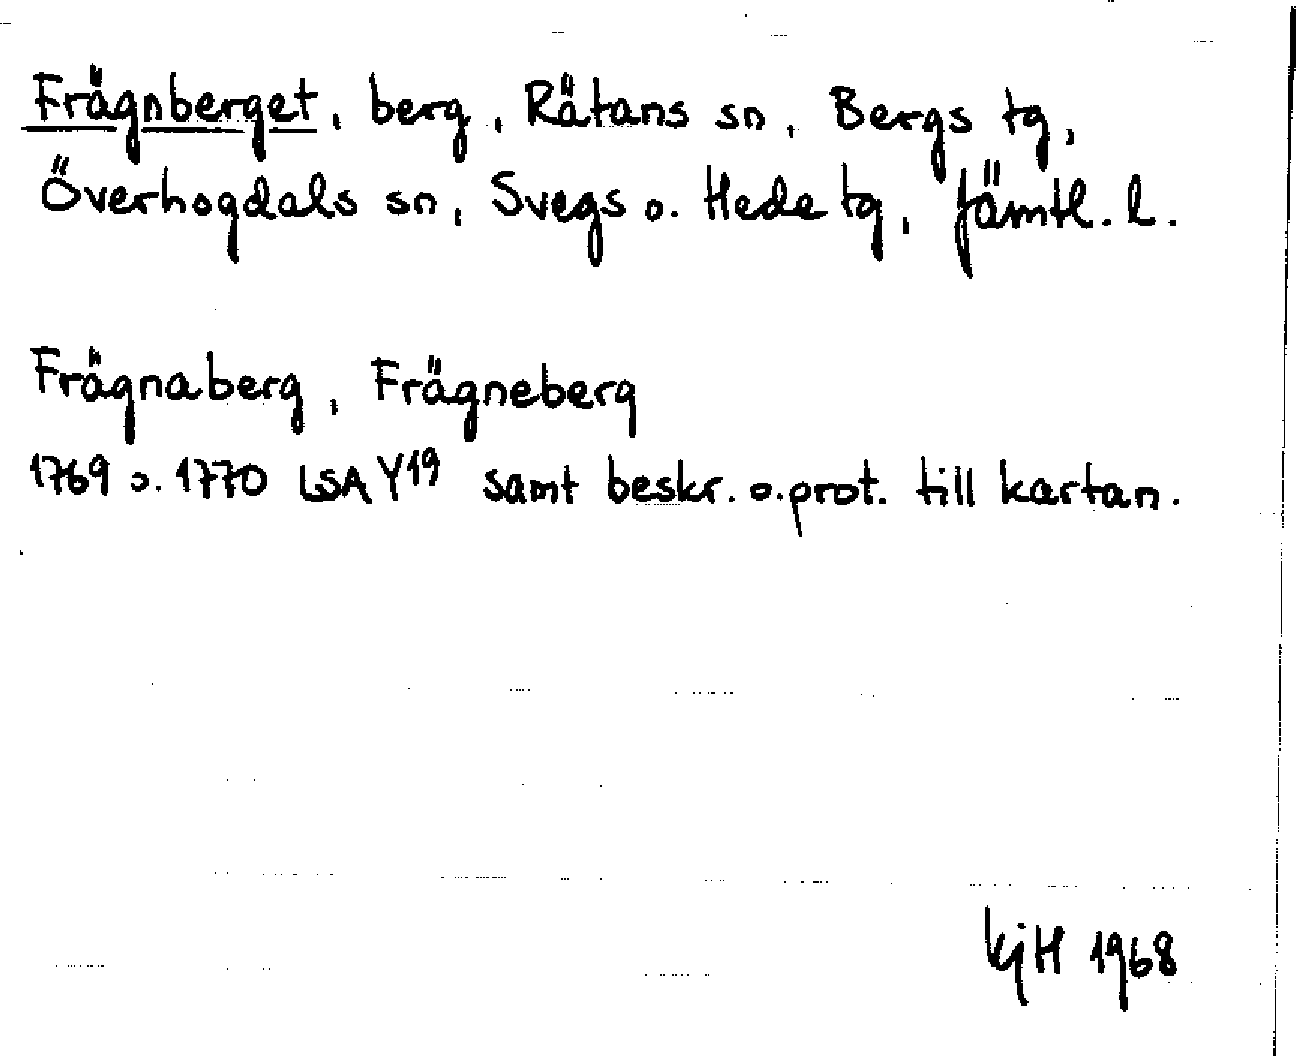 Frägnberget, berg, Rätans sn, Bergs tg,
Överhogdals sn, Svegs o. Hede tg, Jämtl. l.
Frägnaberg, Frägneberg
1769 o. 1770 LSA Y19 samt beskr. o. prot. till kartan.
KjH 1968